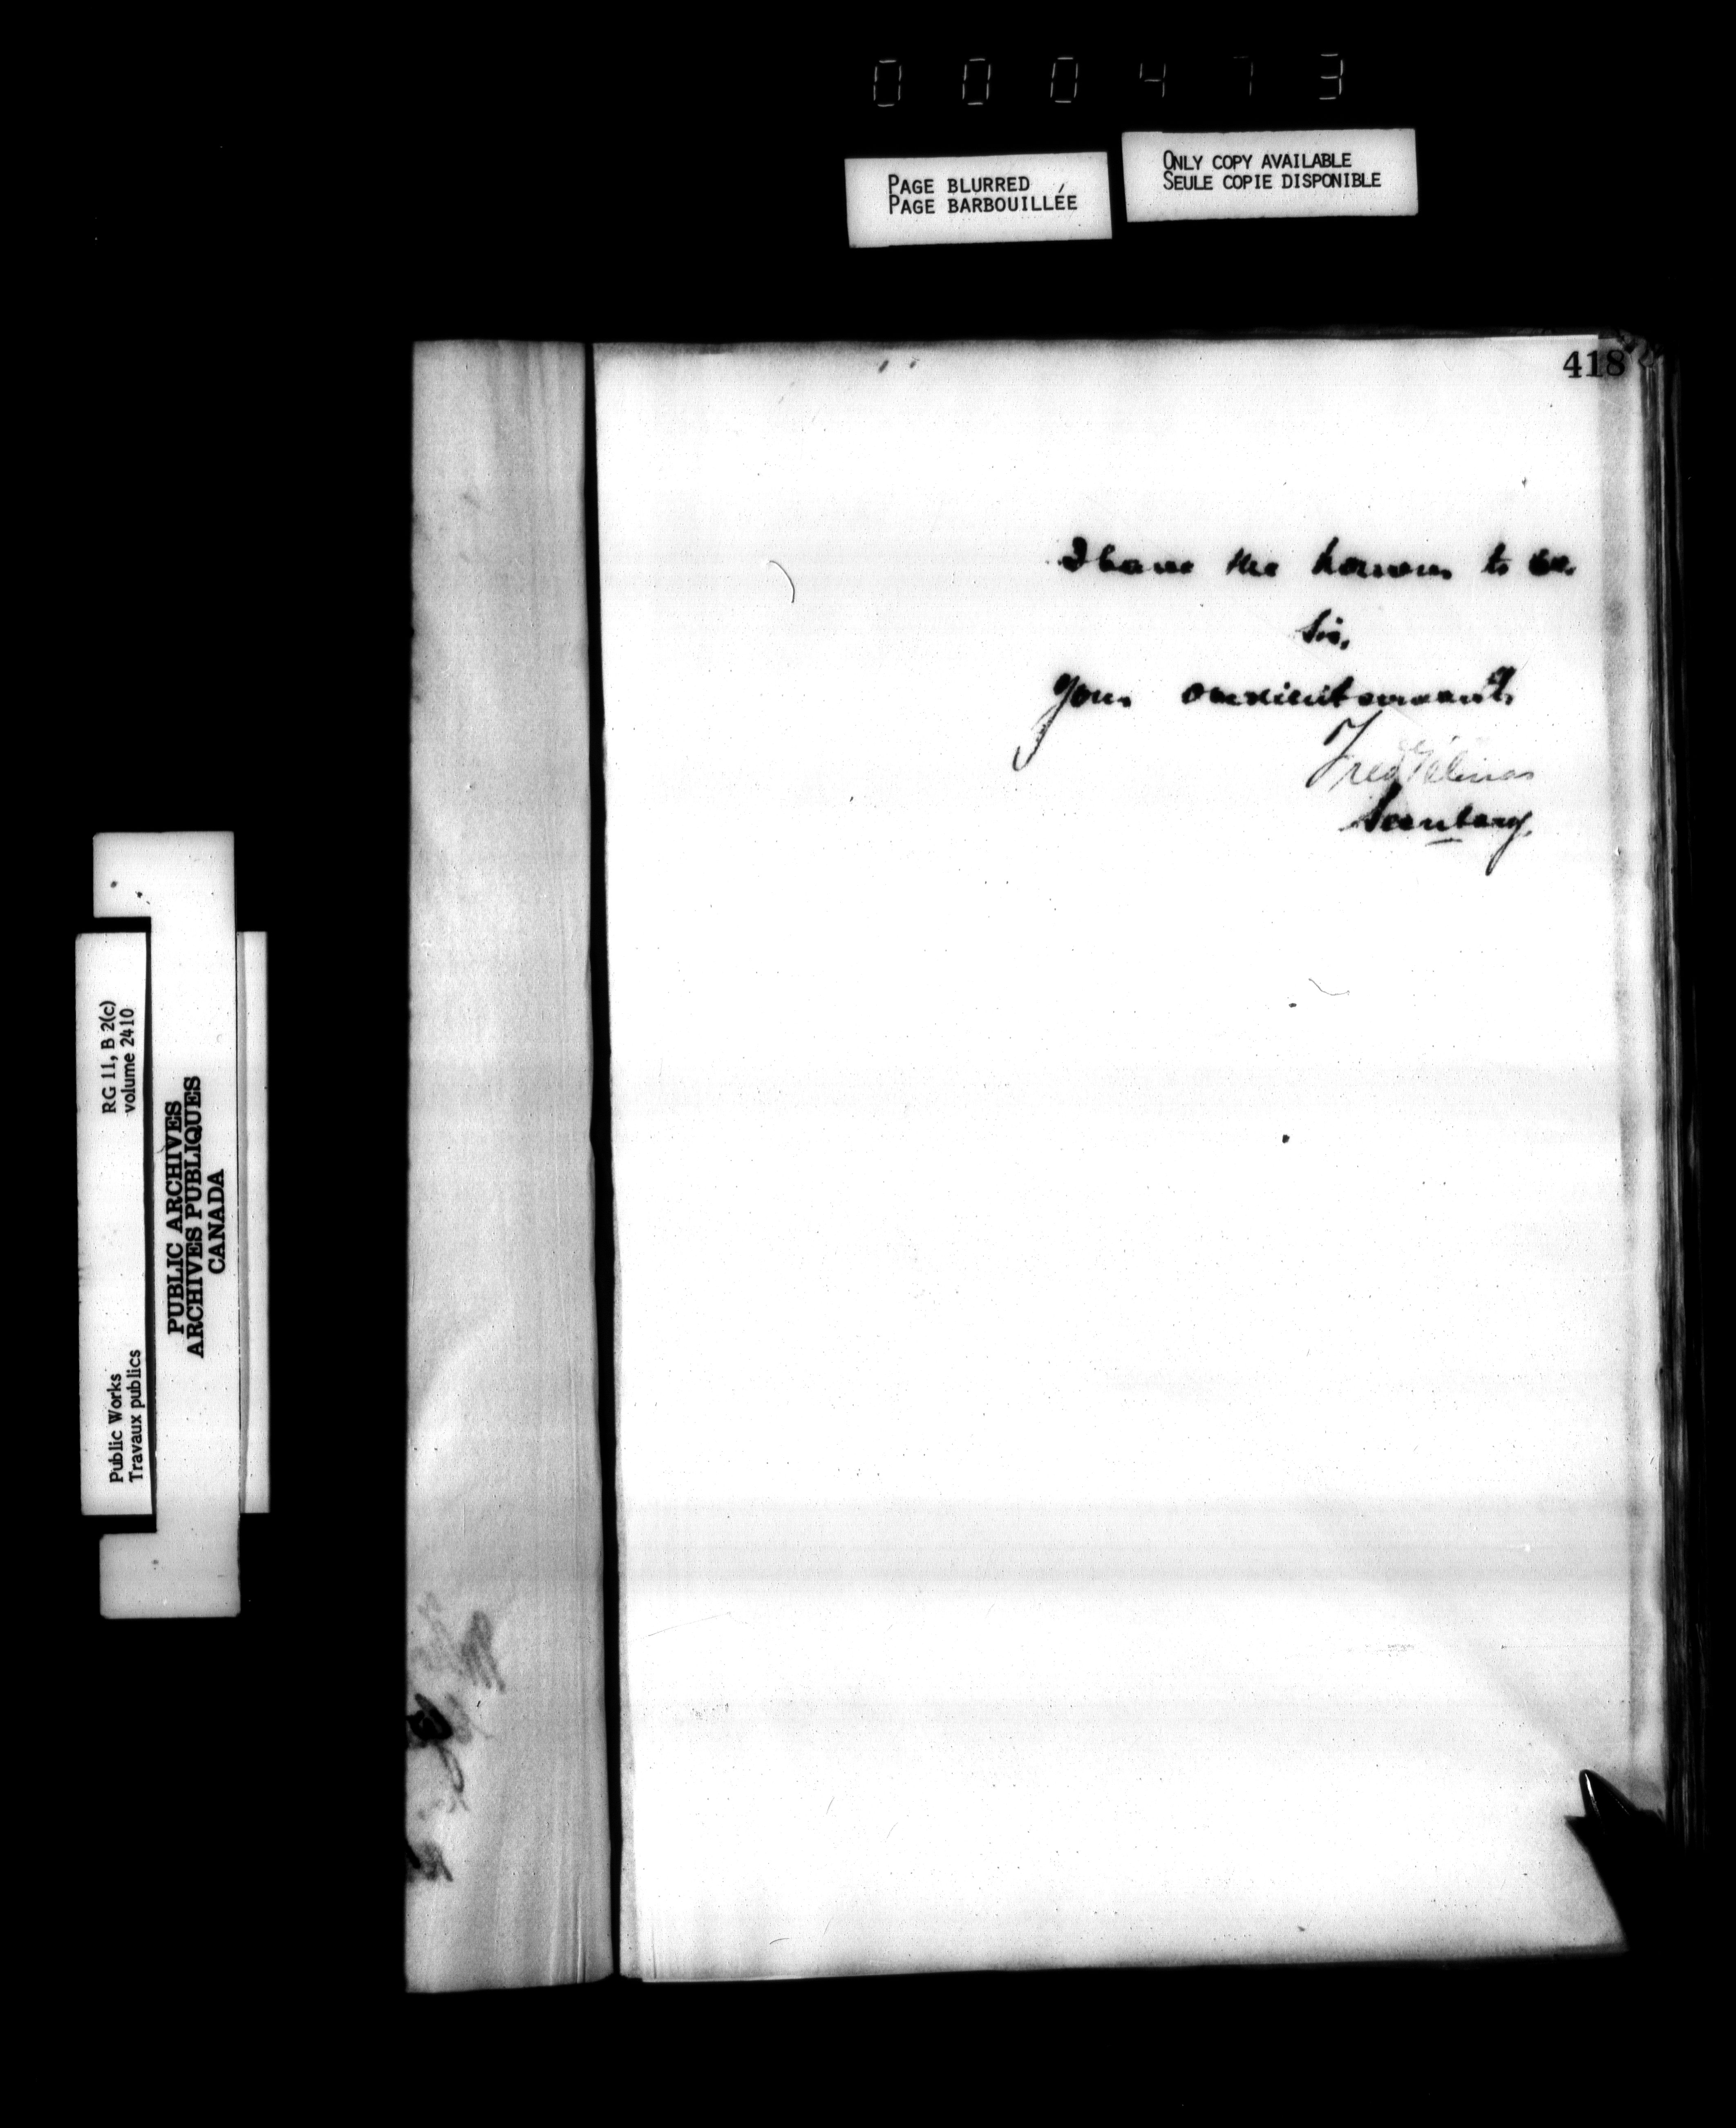 000473
PAGE BLURRED
PAGE BARBOUILLÉE
ONLY COPY AVAILABLE
SEULE COPIE DISPONIBLE
418
I have the honour to be.
Sir,
Your obedient servant,
Fred Gélinas
Secretary.
RG 11, B 2(c)
volume 2410
Public Works
Travaux publics
PUBLIC ARCHIVES
ARCHIVES PUBLIQUES
CANADA